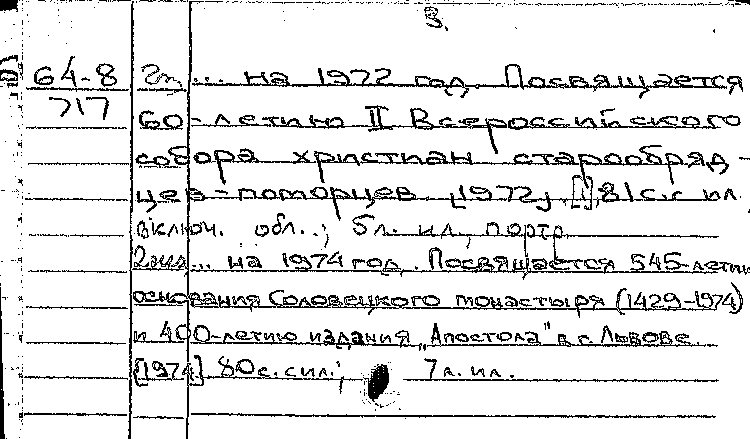 3.
64-8 2л ... на 1972 год. Посвящается
717 60-летию II Всероссийского
собора христиан старообряд-
цев-поморцев. [1972]. [1], 81 с. с ил.
включ. обл.; 5 л. ил., портр.
... на 1974 год. Посвящается 545-летию
основания Соловецкого монастыря (1429-1974)
и 400-летию издания „Апостола" в г. Львове.
[1974]. 80 с. с ил.; 7 л. ил.